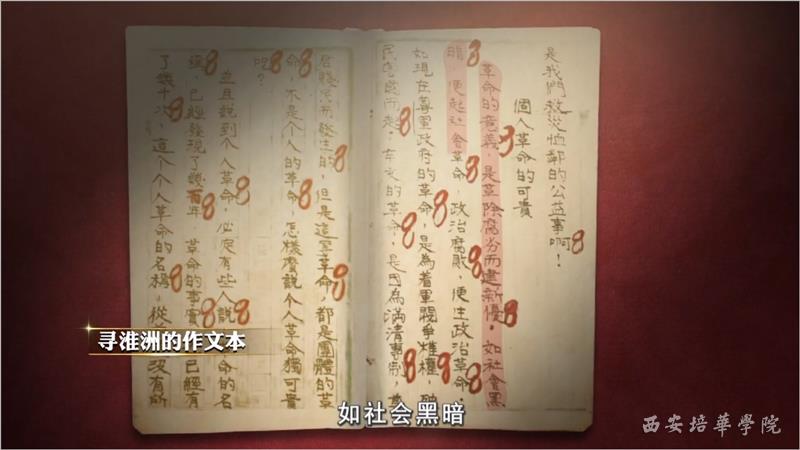 是我們救災恤鄰的公益事啊！
個人革命的可貴
革命的意義，是革除腐劣而建新優。如社會黑
暗，便起社會革命，政治腐敗，便生政治革命
如現在 軍政府的革命，是為着軍閥爭
民 而起，辛亥的革命，是因為滿清專制，
居賤 而發生的，但是這等革命，都是團體的革
命，不是个人的革命，怎樣 說个人革命獨可貴
呢？
並且說到个人革命，必定有些人說 命的名
已經發現了幾百年 革命的事實 已經有
了幾十次，這个个人革命的名稱，從 沒有所
寻淮洲的作文本
如社会黑暗
西安培華學院